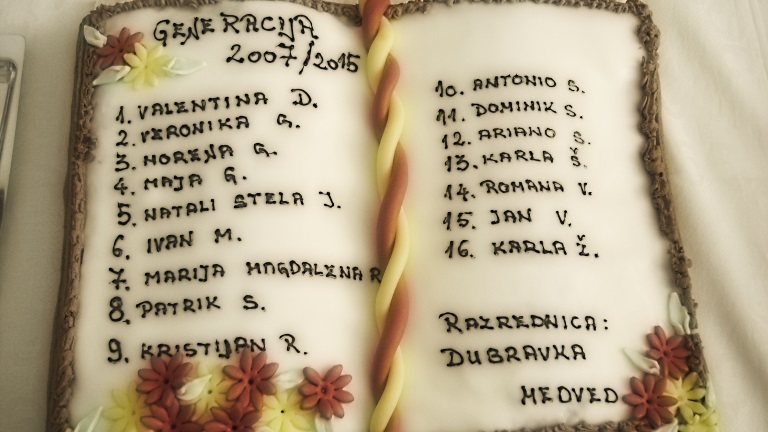 GENERACIJA
2007/2015
1. VALENTINA D.
2. VERONIKA G.
3. MORENA G.
4. MAJA G.
5. NATALI STELA J.
6. IVAN M.
7. MARIJA MAGDALENA R
8. PATRIK S.
9. KRISTIJAN R.
10. ANTONIO S.
11. DOMINIK S.
12. ARIANO S.
13. KARLA Š.
14. ROMANA V.
15. JAN V.
16. KARLA Ž.
RAZREDNICA:
DUBRAVKA
MEDVED